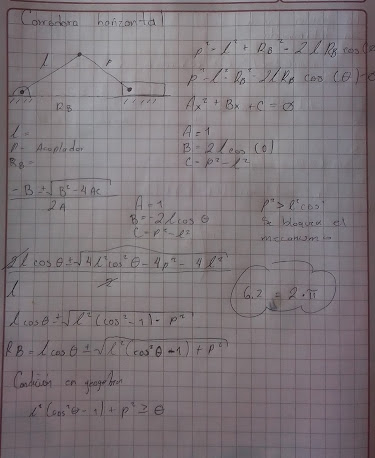 Corredera horizontal
p² = l² + RB² - 2lRB cos(
p² - l² - RB² - 2lRB cos (θ)
Ax² + Bx + C = 0
l r
RB
l =
P = Acoplador
RB =
A = 1
B = 2l cos (θ)
C = p² - l²
-B ± √B² - 4AC
2A
A = 1
B = -2l cos θ
C = p² - l²
p² > l² cos²
Se bloquea el
mecanismo
2l cos θ ± √4l² cos² θ - 4p² - 4l²
2
6.2 = 2·π
l cos θ ± √l² (cos² - 1) - p²
RB = l cos θ ± √l² (cos² θ - 1) + p²
Condición en
l² (cos² θ - 1) + p² ≥ θ